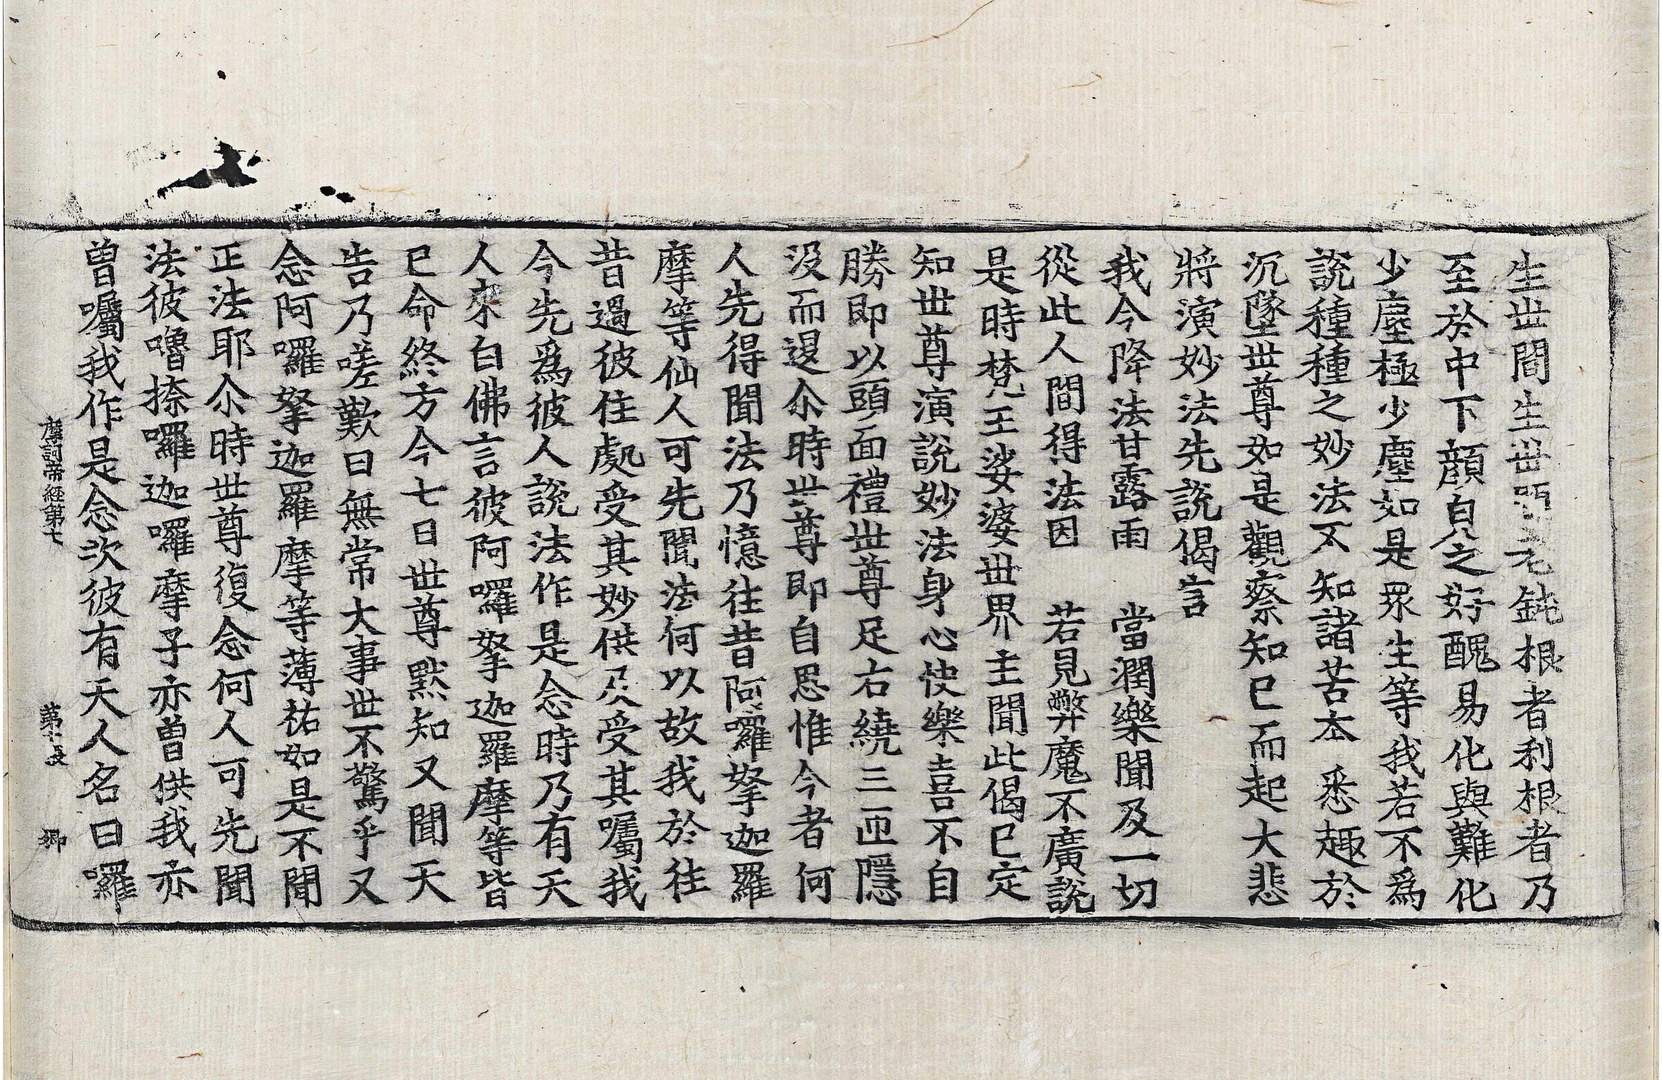 生丗間生丗間老鈍根者利根者乃
至於中下顔皃之好醜易化與難化
少塵極少塵如是眾生等我若不爲
說種種之妙法不知諸苦本悉趣於
沉墜丗尊如是觀察知已而起大悲
將演妙法先說偈言
我今降法甘露雨　當潤樂聞及一切
從此人間得法因　若見弊魔不廣說
是時梵王娑婆丗界主聞此偈已定
知丗尊演說妙法身心快樂喜不自
勝即以頭面禮丗尊足右繞三匝隱
没而退尒時丗尊即自思惟今者何
人先得聞法乃憶往昔阿囉拏迦羅
摩等仙人可先聞法何以故我於往
昔過彼住處受其妙供及受其囑我
今先爲彼人說法作是念時乃有天
人來白佛言彼阿囉拏迦羅摩等皆
已命終方今七日丗尊默知又聞天
告乃嗟歎曰無常大事世不驚乎又
念阿囉拏迦羅摩等薄祐如是不聞
正法耶尒時丗尊復念何人可先聞
法彼嚕捺囉迦囉摩子亦曾供我亦
曽囑我作是念次彼有天人名曰囉
摩訶帝經第七　第十五張　鄉